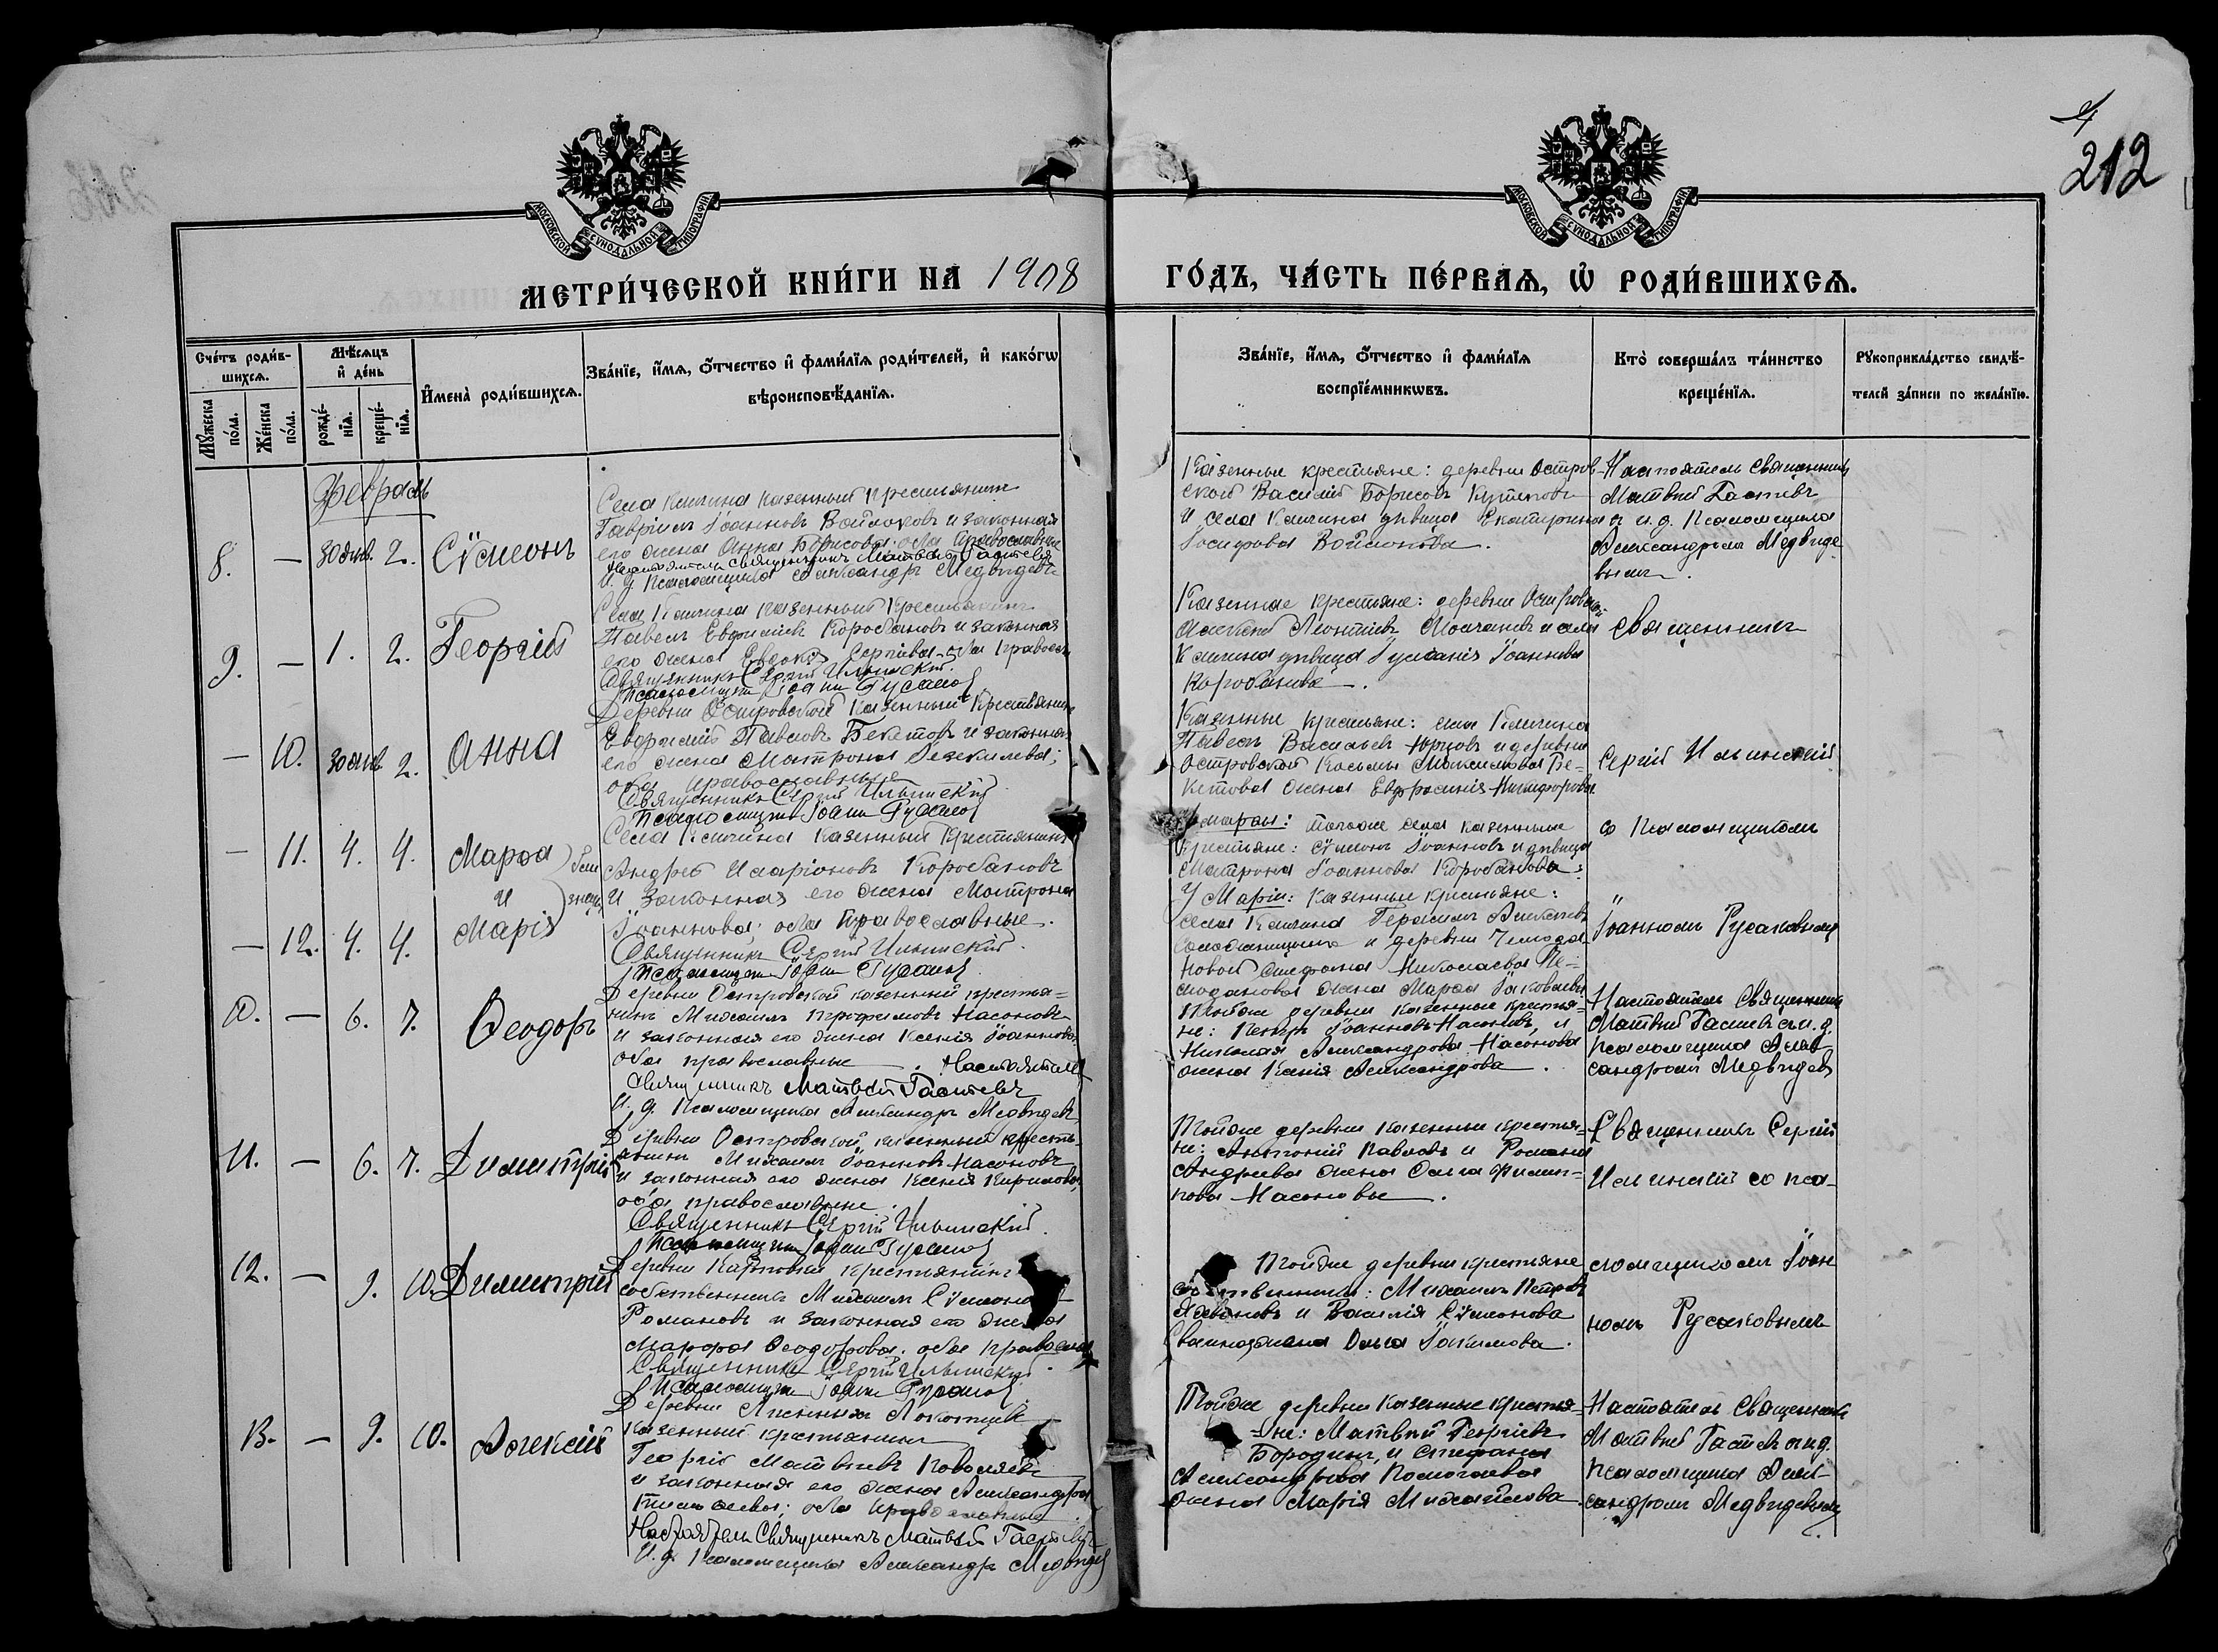 212
МОСКОВСКОЙ СѴНОДАЛЬНОЙ ТИПОГРАФІИ
МОСКОВСКОЙ СѴНОДАЛЬНОЙ ТИПОГРАФІИ
МЕТРИ́ЧЕСКОЙ КНИ́ГИ НА 1908
ГО́ДЪ, ЧА́СТЬ ПЕ́РВАѦ, Ѡ҆ РОДИ́ВШИХСѦ.
Сче́тъ роди́в-
шихсѧ.
Мꙋ́жеска
по́ла.
Же́нска
по́ла.
Мѣ́сѧцъ
и҆ де́нь
рожде́-
нїѧ.
креще́-
нїѧ.
И҆мена̀ роди́вшихсѧ.
Зва́нїе, и҆́мѧ, ѻ҆́тчество и҆ фами́лїѧ роди́телей, и҆ како́гѡ
вѣроисповѣ́данїѧ.
Зва́нїе, и҆́мѧ, ѻ҆́тчество и҆ фами́лїѧ
воспрїе́мникѡвъ.
Кто̀ соверша́лъ та́инство
креще́нїѧ.
Рꙋкоприкла́дство свидѣ́-
телей за́писи по жела́нїю.
Февраль
8. — 30 янв. 2. Сѵмеонъ
Села Кличина казенный крестьянинъ
Гавріилъ Іоанновъ Войлоковъ и законная
его жена Анна Борисова; оба православные
Настоятель Священникъ Матвѣй Гастевъ
И. д. Псаломщика Александръ Медвѣдевъ
Казенные крестьяне: деревни Остров-
ской Василій Борисовъ
и села Кличина дѣвица Екатерина
Іосифова Войлокова.
Настоятель Священникъ
Матвѣй Гастевъ
съ и. д. Псаломщика
Александромъ Медвѣде
вымъ.
9. — 1. 2. Георгій
Села Кличина казенный крестьянинъ
Павелъ Евфиміевъ Коробановъ и законная
его жена Евдокія Сергіева оба правосл.
Священникъ Сергій Ильинскій.
Псаломщикъ Іоаннъ Русаков
Казенные крестьяне: деревни Островской
Алексѣй Леонтіевъ Молчановъ и села
Кличина дѣвица Іуліанія Іоаннова
Коробанова.
Священникъ
— 10. 30 янв 2. Анна
Деревни Островской казенный крестьянинъ
Евфимій Павловъ Бекетовъ и законная
его жена Матрона Іезекіилева;
оба православные
Священникъ Сергій Ильинскій
Псаломщикъ Іоаннъ Русаков
Казенные крестьяне: села Кличина
Павелъ Васильевъ и деревни
Островской Космы Максимова Бе-
кетова жена Евфросинія Никифорова
Сергій Ильинскій
— 11. 4. 4. Марѳа
и
близнецы
— 12. 4. 4. Марія
Села Кличина казенный крестьянинъ
Андрей Иларіоновъ Коробановъ
и законная его жена Матрона
Іоаннова; оба православные.
Священникъ Сергій Ильинскій.
Псаломщикъ Іоаннъ Русаков
У Марѳы: тогоже села казенные
крестьяне: Сѵмеонъ Іоанновъ и дѣвица
Матрона Іоаннова Коробанова;
У Маріи: казенные крестьяне:
села Кличина Герасимъ Алексѣевъ
и деревни Чемода
новой Стефана Николаева Че-
моданова жена Марѳа Іаковлева
со Псаломщикомъ
Іоанномъ Русаковымъ
10. — 6. 7. Ѳеодоръ
Деревни Островской казенный крестья=
нинъ Михаилъ Трофимовъ Насоновъ
и законная его жена Ксенія Іоаннова,
оба православные. Настоятель
Священникъ Матвѣй Гастевъ
И. д. Псаломщика Александръ Медвѣдевъ
Тойже деревни казенные крестья-
не: Петръ Іоанновъ Насоновъ, и
Николая Александрова Насонова
жена Ксенія Александрова.
Настоятель Священникъ
Матвѣй Гастевъ съ и. д.
псаломщика Алек-
сандромъ Медвѣдев
11. — 6. 7. Димитрій
Деревни Островской казенный кресть-
янинъ Михаилъ Іоанновъ Насоновъ
и законная его жена Ксенія Кирилова,
оба православные.
Священникъ Сергій Ильинскій.
Псаломщикъ Іоаннъ Русаков
Тойже деревни казенные крестья-
не: Антоній Павловъ и Романа
Андреева жена Ольга Филип-
пова Насоновы.
Священникъ Сергій
Ильинскій со пса-
12. — 9. 10. Димитрій
Деревни Карповки крестьянинъ
собственникъ Михаилъ Сѵмеоновъ
Романовъ и законная его жена
Марѳа Ѳеодорова; оба православ
Священникъ Сергій Ильинскій.
Псаломщикъ Іоаннъ Русаков
Тойже деревни крестьяне
собственники: Михаилъ Петровъ
и Василія Сѵмеонова
жена Ольга Іакимова.
ломщикомъ Іоан
номъ Русаковымъ
13. — 9. 10. Алексій
Деревни
казенный крестьянинъ
Георгій Матвѣевъ Ковалевъ
и законная его жена Александра
оба православные.
Настоятель Священникъ Матвѣй Гастевъ
И. д. Псаломщика Александръ Медвѣдев
Тойже деревни казенные крестья-
не: Матвѣй Георгіевъ
Бородинъ, и Стефана
Александрова
жена Марія Михайлова.
Настоятель Священникъ
Матвѣй Гастевъ съ и.д.
Псаломщика Алек-
сандромъ Медвѣдевымъ